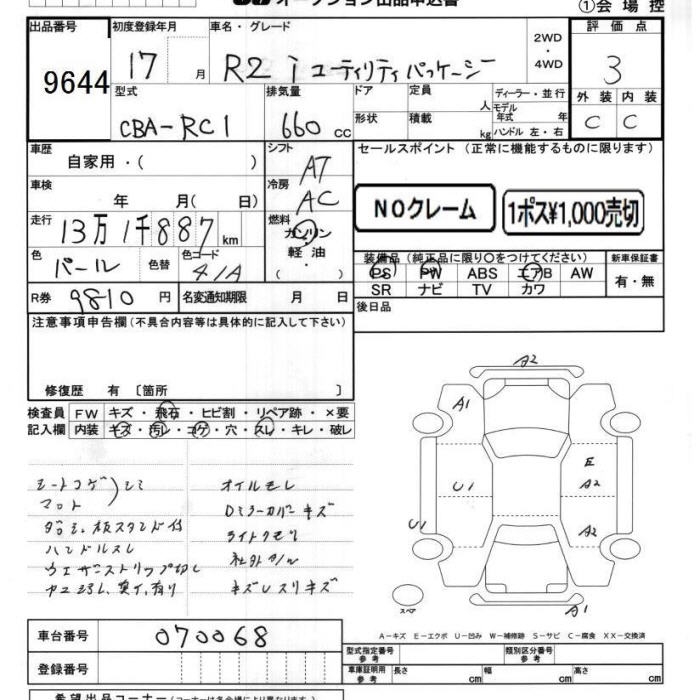 オークション出品申込書
①会 場 控
出品番号 初度登録年月 車名・グレード 評 価 点
9644 17 月 R2 i ユーティリティパッケージ 2WD ・ 4WD 3
型式 排気量 ドア 定員 ディーラー・並行 外 装 内 装
CBA-RC1 660 cc 形状 積載 人 kg モデル年式 年 ハンドル 左・右 C C
車歴 自家用・( ) シフト AT セールスポイント(正常に機能するものに限ります)
車検 年 月( 日) 冷房 AC NOクレーム 1ポス¥1,000売切
走行 13万1千887 km 燃料 ガソリン・軽油・( )
色 パール 色替 色コード 41A
装備品(純正品に限り○をつけてください) 新車保証書
PS PW ABS エアB AW 有・無
SR ナビ TV カワ
R券 9810 円 名変通知期限 月 日 後日品
注意事項申告欄(不具合内容等は具体的に記入して下さい)
修復歴 有 〔箇所 〕
検査員 FW キズ・飛石・ヒビ割・リペア跡・×要
記入欄 内装 キズ・汚レ・コゲ・穴・スレ・キレ・破レ
シートコゲ)シミ
マット
ダッシュ板スタンド付
ハンドルスレ
ウェザーストリップ切レ
オイルモレ
Dミラーカバーキズ
ライトクモリ
社外アルミ
キズレスリキズ
A2
A1
E
U1 A2
U1
A2
A1
スペア
A-キズ E-エクボ U-凹み W-補修跡 S-サビ C-腐食 XX-交換済
車台番号 070068
登録番号
型式指定番号 参考 類別区分番号 参考
車庫証明用 参考 長さ cm 幅 cm 高さ cm
希望出品コーナー(コーナーは各会場により異なります)